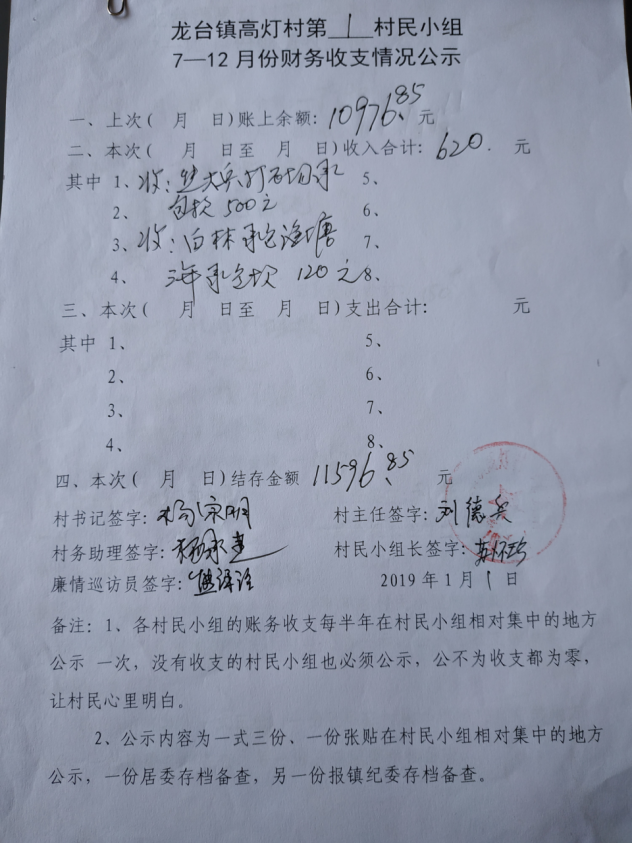 龙台镇高灯村第1村民小组
7—12月份财务收支情况公示
一、上次( 月 日)账上余额: 10976.85元
二、本次( 月 日至 月 日)收入合计: 620. 元
其中 1、收: 5、
2、 500元 6、
3、收:白林承包渔塘 7、
4、 承包款 120元 8、
三、本次( 月 日至 月 日)支出合计: 元
其中 1、 5、
2、 6、
3、 7、
4、 8、
四、本次( 月 日)结存金额 11596.85 元
村书记签字: 村主任签字:刘德兵
村务助理签字: 村民小组长签字:
廉情巡访员签字: 2019年1月1日
备注: 1、各村民小组的账务收支每半年在村民小组相对集中的地方
公示 一次,没有收支的村民小组也必须公示,公不为收支都为零,
让村民心里明白。
2、公示内容为一式三份、一份张贴在村民小组相对集中的地方
公示,一份居委存档备查,另一份报镇纪委存档备查。